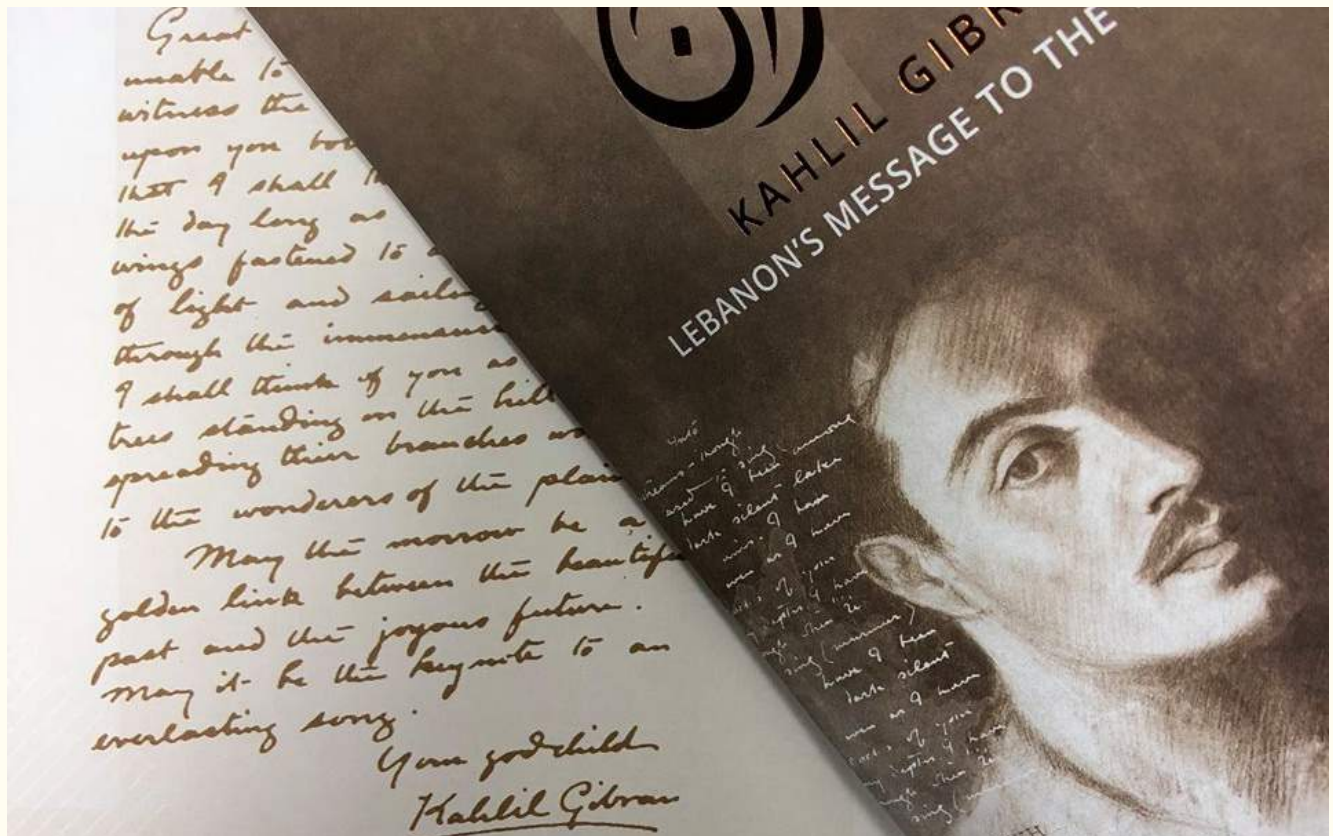 Great
unable to
witness the
upon you bot
that I shall th
the day long as
wings fastened to a
of light and sailing
through the immensur
I shall think of you as
trees standing on the hill
spreading their branches
to the wonderers of the plain
May the morrow be a
golden link between the beautiful
past and the joyous future.
May it be the keynote to an
everlasting song.
Your godchild
Kahlil Gibran
KAHLIL GIBR
LEBANON'S MESSAGE TO THE
used to sing
have I been
dark silent lake
have I been
dark silent